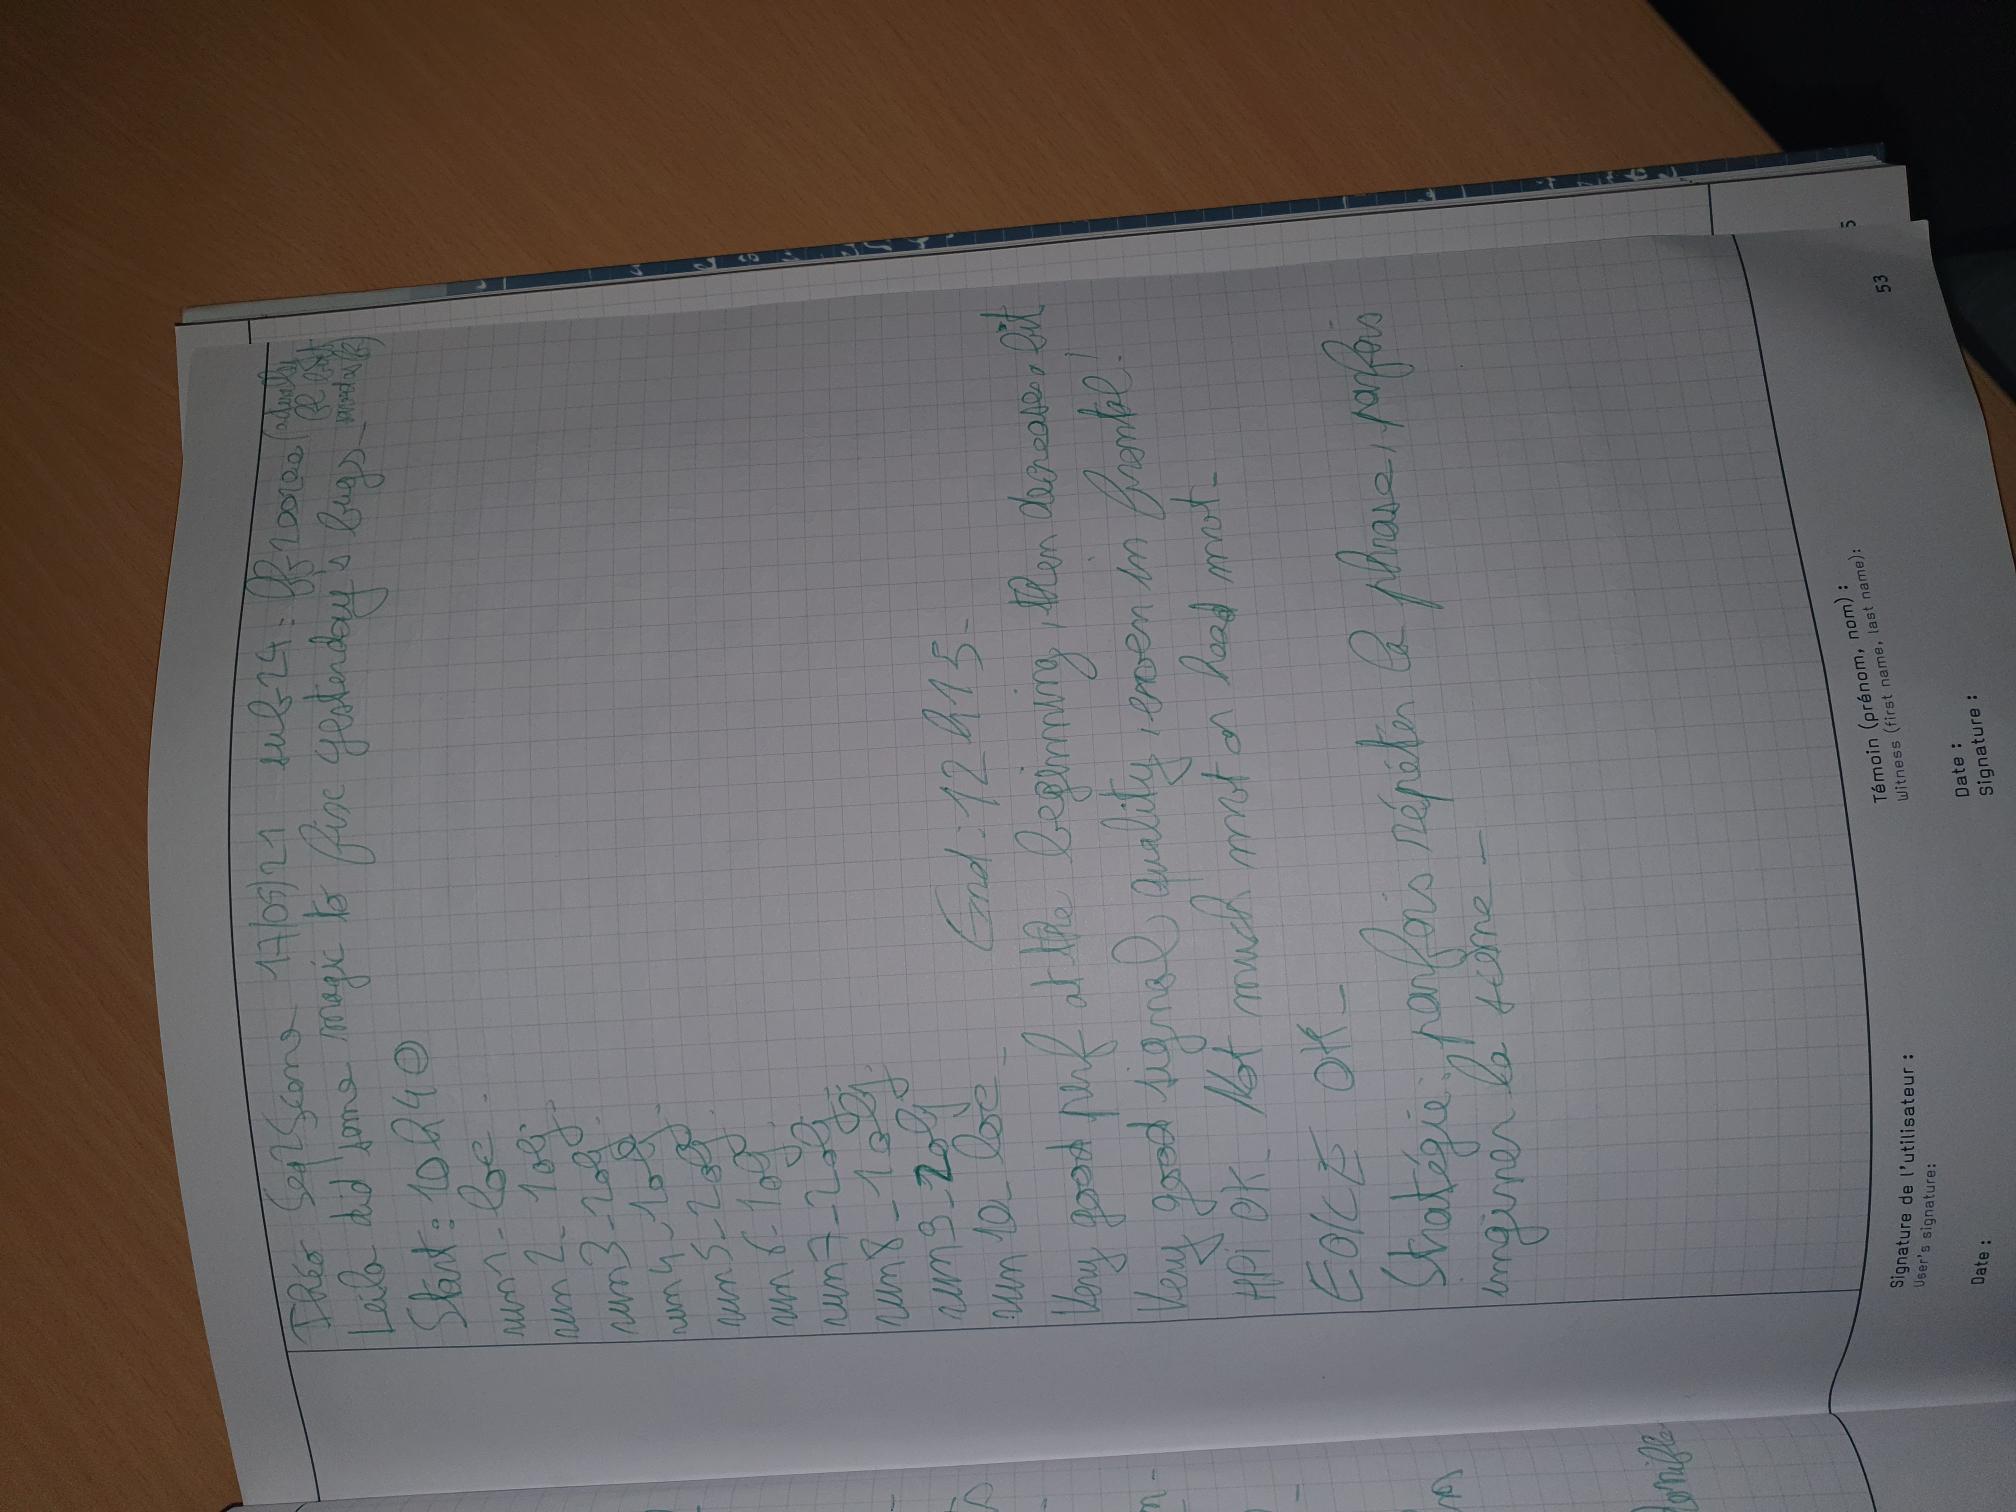 Théo Seq2Scene 17/05/21 sub24:
Leila did some magic to fix yesterday's bugs_
Start: 10h40
run1_loc.
run2_1obj.
run3_2obj.
run4_1obj.
run5_2obj.
run6_1obj.
run7_2obj.
run8_1obj.
run9_2obj
run10_loc_ End: 12h15_
Very good perf at the beginning, then decrease a bit
Very good signal quality, even in frontal!
HPI OK_ Not much mvt or head mvt_
EOICE OK_
Stratégie: parfois répéter la phrase, parfois
imginer la scène_
Signature de l'utilisateur :
User's signature:
Date :
Témoin (prénom, nom) :
Witness (first name, last name):
Date :
Signature :
53
5